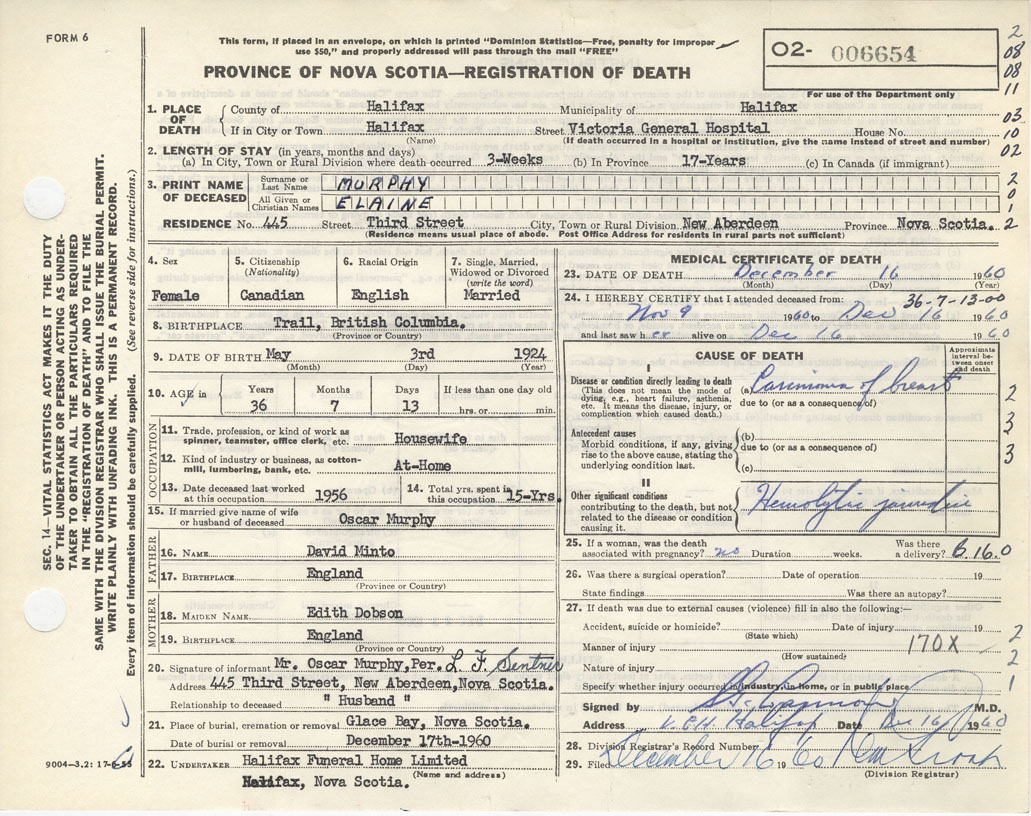 FORM 6
This form, if placed in an envelope, on which is printed "Dominion Statistics—Free, penalty for improper
use $50," and properly addressed will pass through the mail "FREE"
O2- 006654
For use of the Department only
PROVINCE OF NOVA SCOTIA—REGISTRATION OF DEATH
2
08
08
11
03
10
02
2
0
1
2
1. PLACE OF DEATH
County of Halifax Municipality of Halifax
If in City or Town Halifax Street Victoria General Hospital House No.
(Name) (If death occurred in a hospital or institution, give the name instead of street and number)
2. LENGTH OF STAY (in years, months and days)
(a) In City, Town or Rural Division where death occurred 3-Weeks (b) In Province 17-Years (c) In Canada (if immigrant)
3. PRINT NAME OF DECEASED
Surname or Last Name MURPHY
All Given or Christian Names ELAINE
RESIDENCE No. 445 Street Third Street City, Town or Rural Division New Aberdeen Province Nova Scotia.
(Residence means usual place of abode. Post Office Address for residents in rural parts not sufficient)
4. Sex
Female
5. Citizenship
(Nationality)
Canadian
6. Racial Origin
English
7. Single, Married, Widowed or Divorced
(write the word)
Married
8. BIRTHPLACE Trail, British Columbia.
(Province or Country)
9. DATE OF BIRTH May 3rd 1924
(Month) (Day) (Year)
10. AGE in Years Months Days If less than one day old
36 7 13 hrs. or min.
OCCUPATION
11. Trade, profession, or kind of work as
spinner, teamster, office clerk, etc. Housewife
12. Kind of industry or business, as cotton-
mill, lumbering, bank, etc. At-Home
13. Date deceased last worked
at this occupation 1956
14. Total yrs. spent in
this occupation 15-Yrs.
15. If married give name of wife
or husband of deceased Oscar Murphy
FATHER
16. NAME David Minto
17. BIRTHPLACE England
(Province or Country)
MOTHER
18. MAIDEN NAME Edith Dobson
19. BIRTHPLACE England
(Province or Country)
20. Signature of informant Mr. Oscar Murphy, Per. L. F. Sentner
Address 445 Third Street, New Aberdeen, Nova Scotia.
Relationship to deceased " Husband "
21. Place of burial, cremation or removal Glace Bay, Nova Scotia.
Date of burial or removal December 17th-1960
22. UNDERTAKER Halifax Funeral Home Limited
(Name and address)
Halifax, Nova Scotia.
MEDICAL CERTIFICATE OF DEATH
23. DATE OF DEATH December 16 1960
(Month) (Day) (Year)
24. I HEREBY CERTIFY that I attended deceased from: 36-7-13-00
Nov 9 1960 to Dec 16 1960
and last saw her alive on Dec 16 1960
CAUSE OF DEATH
Approximate interval between onset and death
I
Disease or condition directly leading to death
(This does not mean the mode of
dying, e.g., heart failure, asthenia,
etc. It means the disease, injury, or
complication which caused death.)
(a) Carcinoma of breast
due to (or as a consequence of)
Antecedent causes
Morbid conditions, if any, giving
rise to the above cause, stating the
underlying condition last.
(b)
due to (or as a consequence of)
(c)
II
Other significant conditions
contributing to the death, but not
related to the disease or condition
causing it.
Hemolytic jaundice
2
3
3
25. If a woman, was the death
associated with pregnancy? no Duration weeks. Was there
a delivery? B.16.0
26. Was there a surgical operation? Date of operation 19
State findings Was there an autopsy?
27. If death was due to external causes (violence) fill in also the following:—
Accident, suicide or homicide? Date of injury 19
(State which)
Manner of injury 170X
(How sustained)
Nature of injury
Specify whether injury occurred in industry, in home, or in public place
2
2
1
Signed by M.D.
Address V.G.H. Halifax Date Dec 16 1960
28. Division Registrar's Record Number
29. Filed December 16 1960
(Division Registrar)
SEC. 14—VITAL STATISTICS ACT MAKES IT THE DUTY
OF THE UNDERTAKER OR PERSON ACTING AS UNDER-
TAKER TO OBTAIN ALL THE PARTICULARS REQUIRED
IN THE "REGISTRATION OF DEATH" AND TO FILE THE
SAME WITH THE DIVISION REGISTRAR WHO SHALL ISSUE THE BURIAL PERMIT.
WRITE PLAINLY WITH UNFADING INK. THIS IS A PERMANENT RECORD.
Every item of information should be carefully supplied. (See reverse side for instructions.)